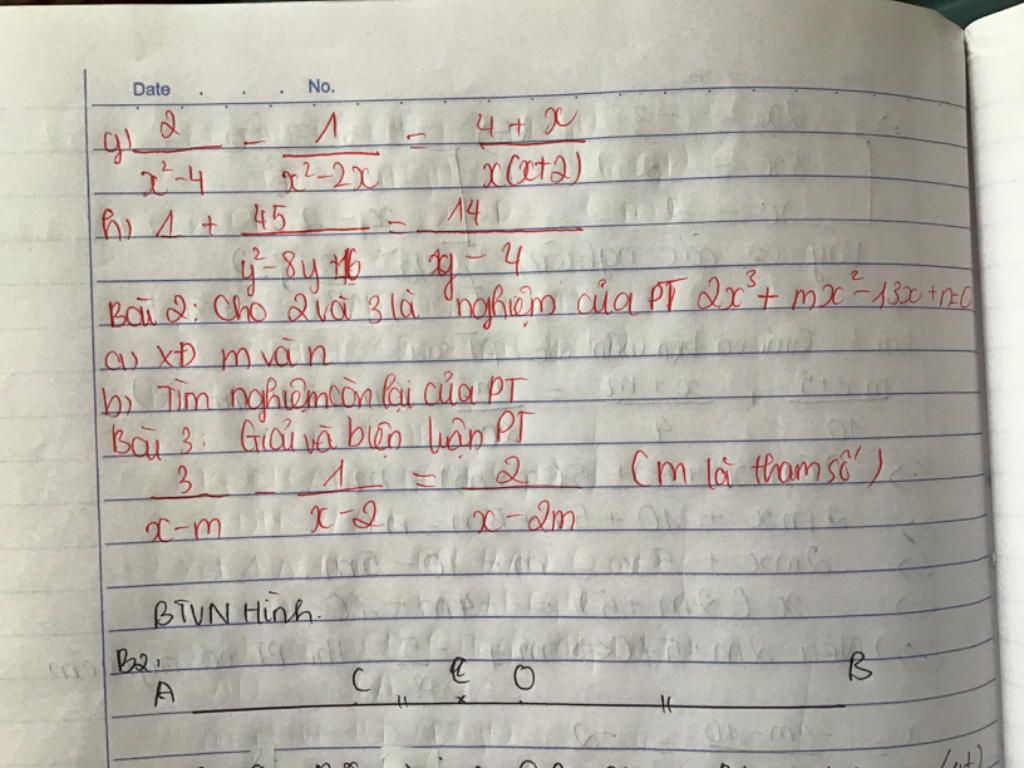 Date . . . No.
g) 2/(x²-4) - 1/(x²-2x) = (4+x)/(x(x+2))
h) 1 + 45/(y²-8y+16) = 14/(y-4)
Bài 2: Cho 2 và 3 là nghiệm của PT 2x³ + mx² - 13x + n=0
a) XĐ m và n
b) Tìm nghiệm còn lại của PT
Bài 3: Giải và biện luận PT
3/(x-m) - 1/(x-2) = 2/(x-2m) (m là tham số)
BTVN Hình.
B2:
A C E O B